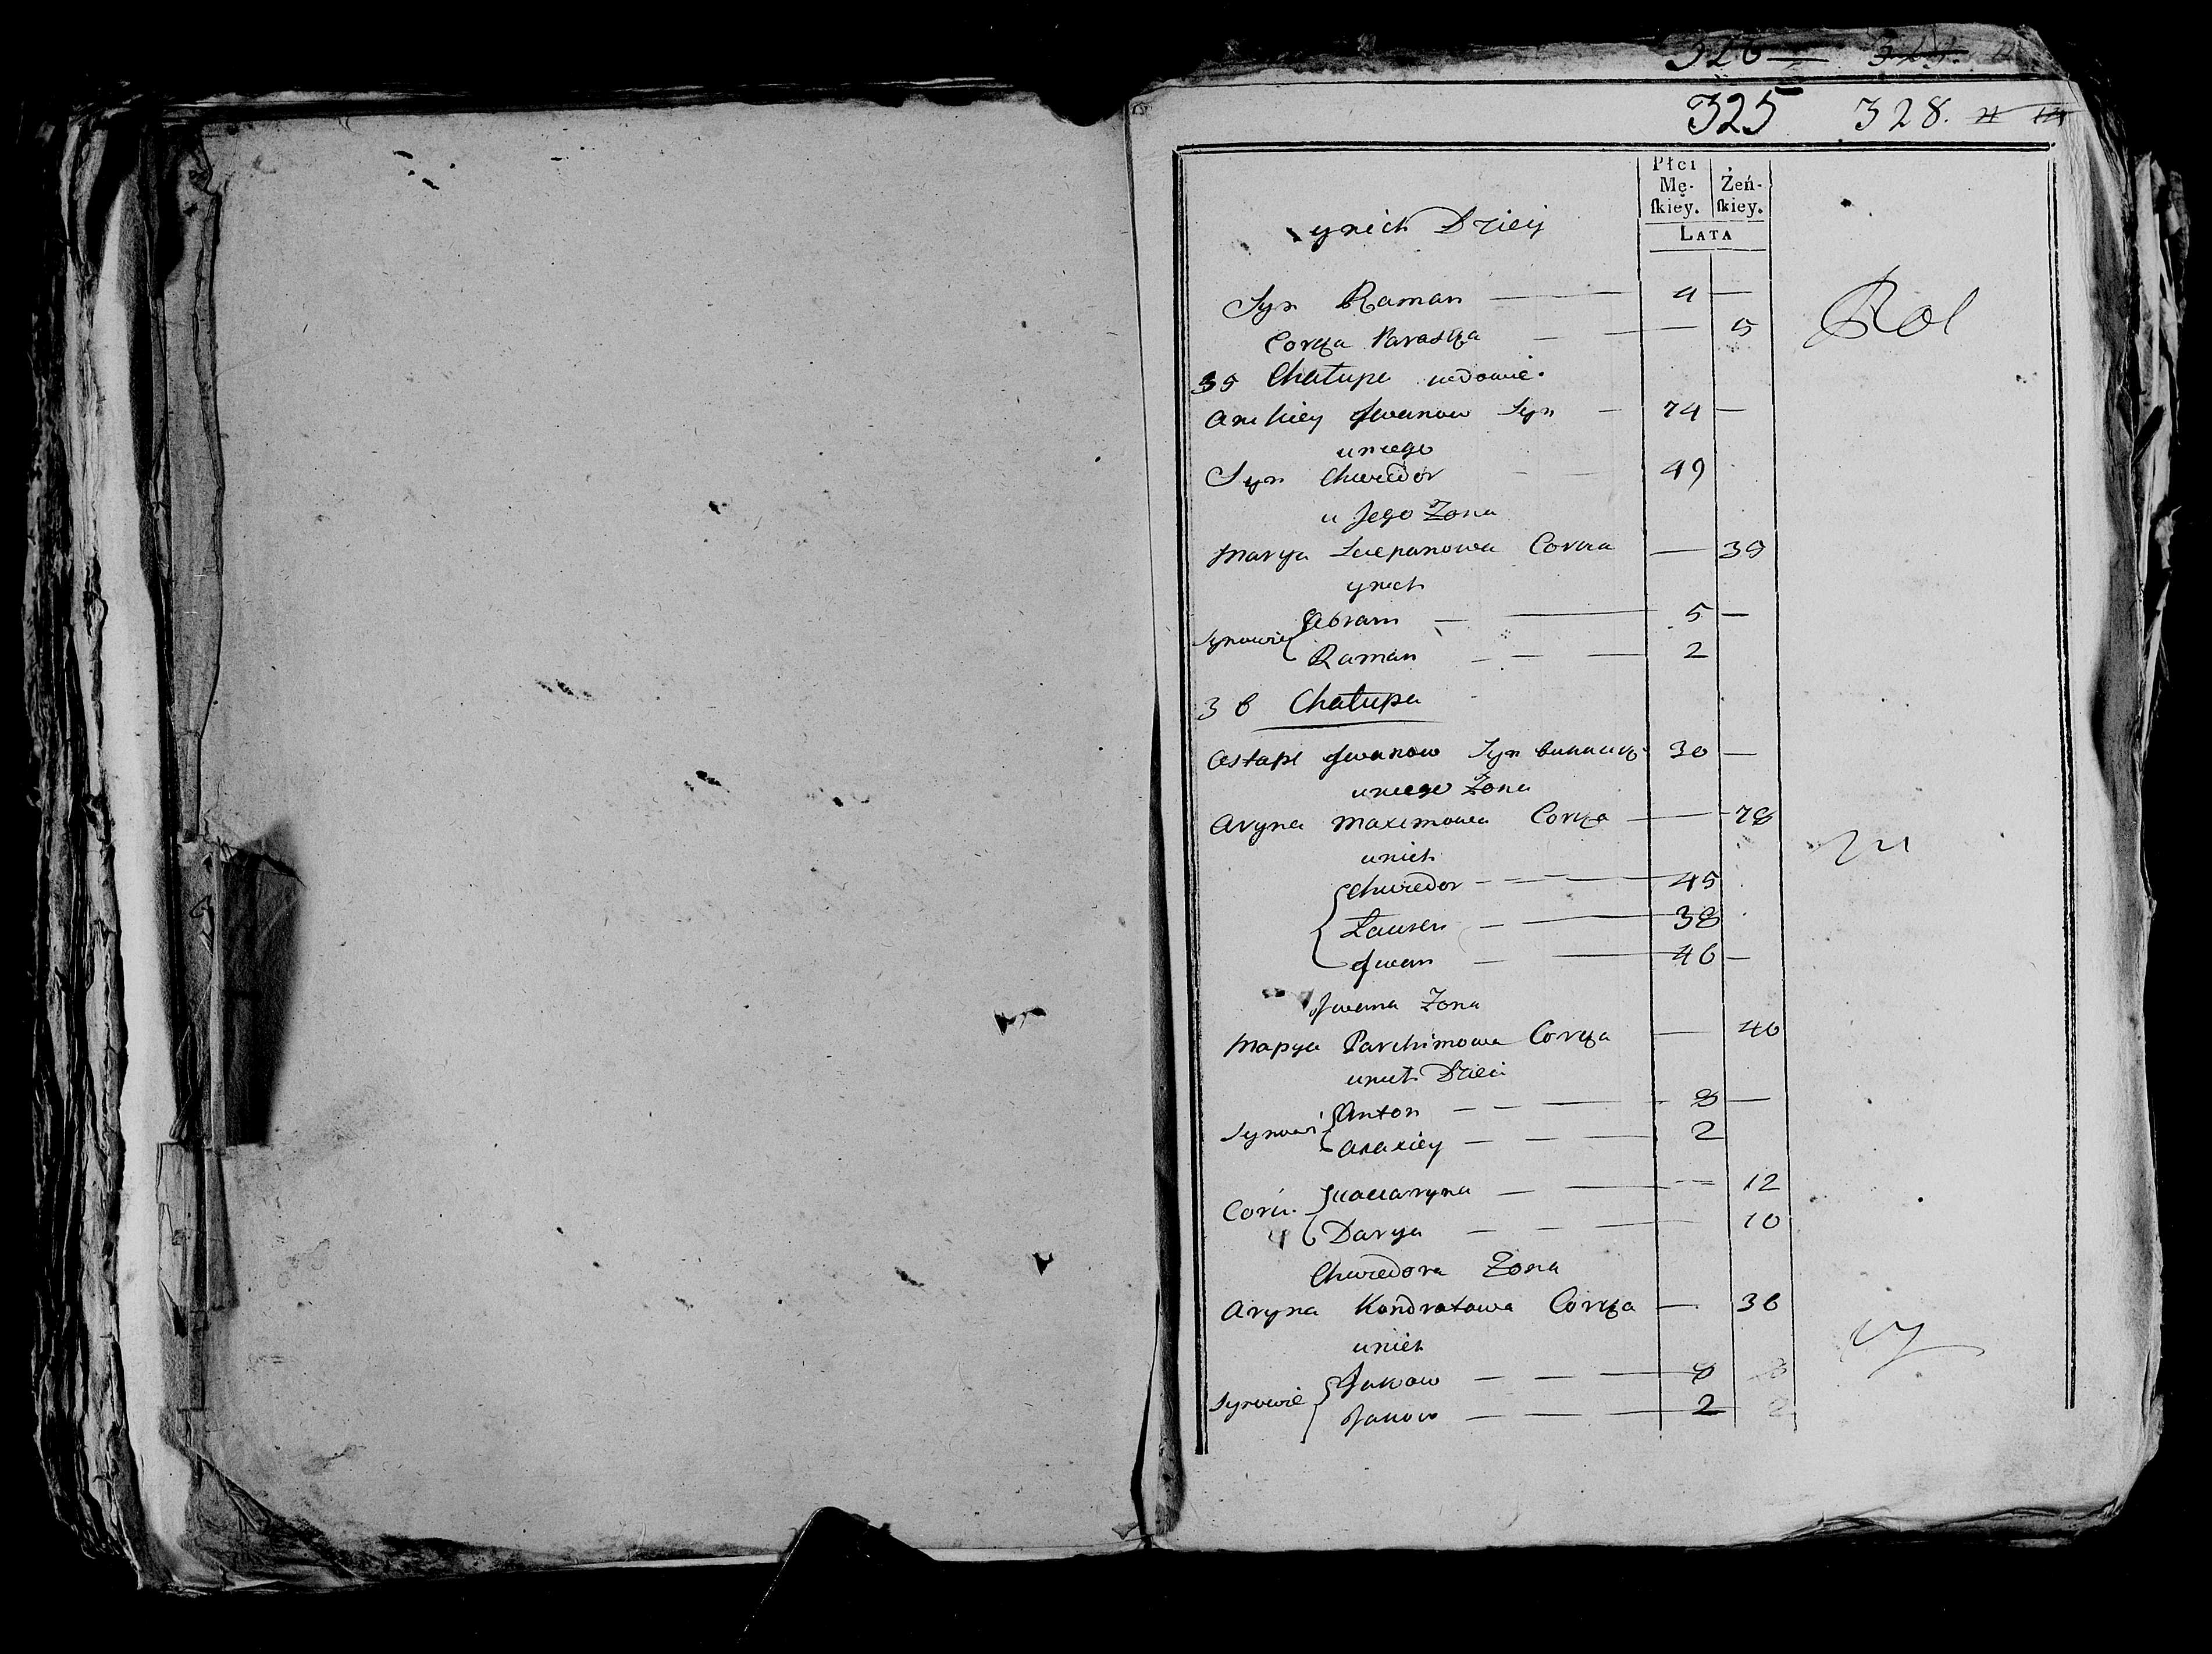 325 328.
Płci
Mę- Żeń-
ſkiey. ſkiey.
LATA
ynich Dzieij
Syn Raman 4 —
Corka Paraska — 5
35 Chałupa wdowie.
Iwanow Syn — 74 —
uniego
Syn Chwiedor — 49
u Jego Zona
Marya Sciepanowa Corka — 39
ynich
Synowie Abram — 5 —
Raman — 2
36 Chałupa
Astape Iwanow Syn 30 —
uniego Zona
Aryna Maximowa Corka — 78
unich
Chwiedor — 45
Lauren — 38
Iwan — 46 —
Iwana Zona
Mapya Parchimowa Corka — 40
unich Dzieci
Synowi Anton — 8 —
Alaxiey — 2
Corki — 12
Darya — 10
Chwiedora Zona
Aryna Kondratowa Corka — 36
unich
Synowie Jakow — 8
Jakow — 2
Rol